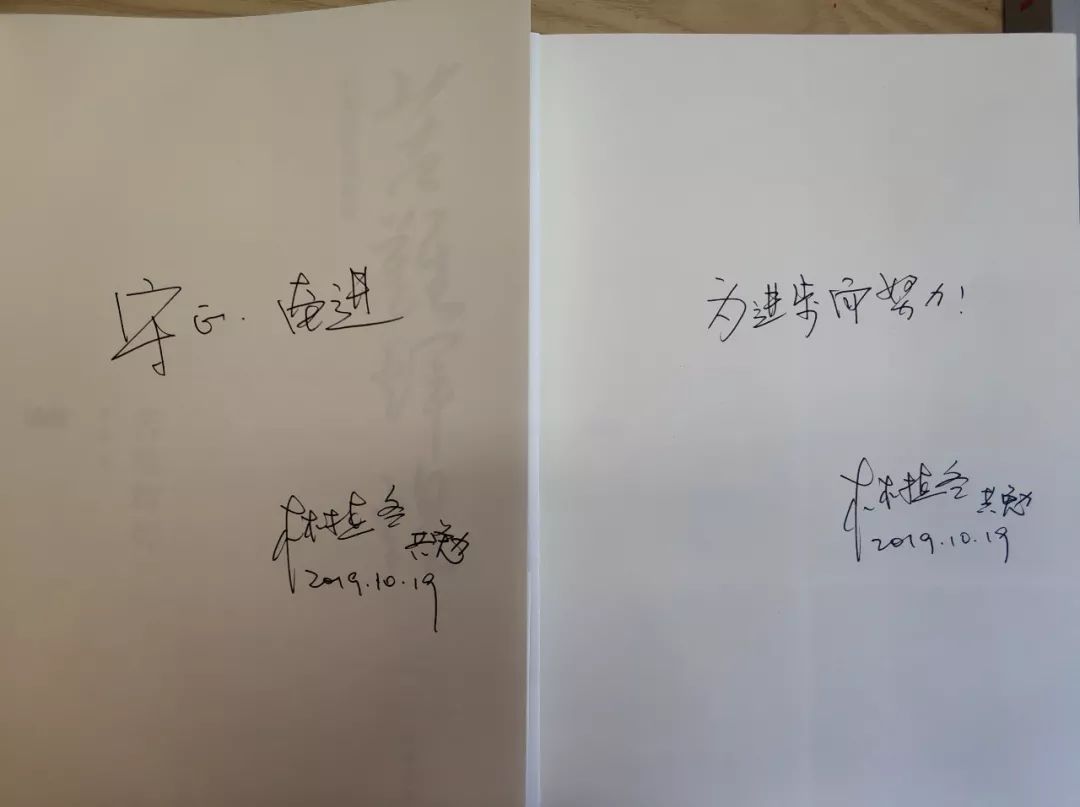 守正.奋进
林植冬 共勉
2019.10.19
为进步而努力!
林植冬 共勉
2019.10.19